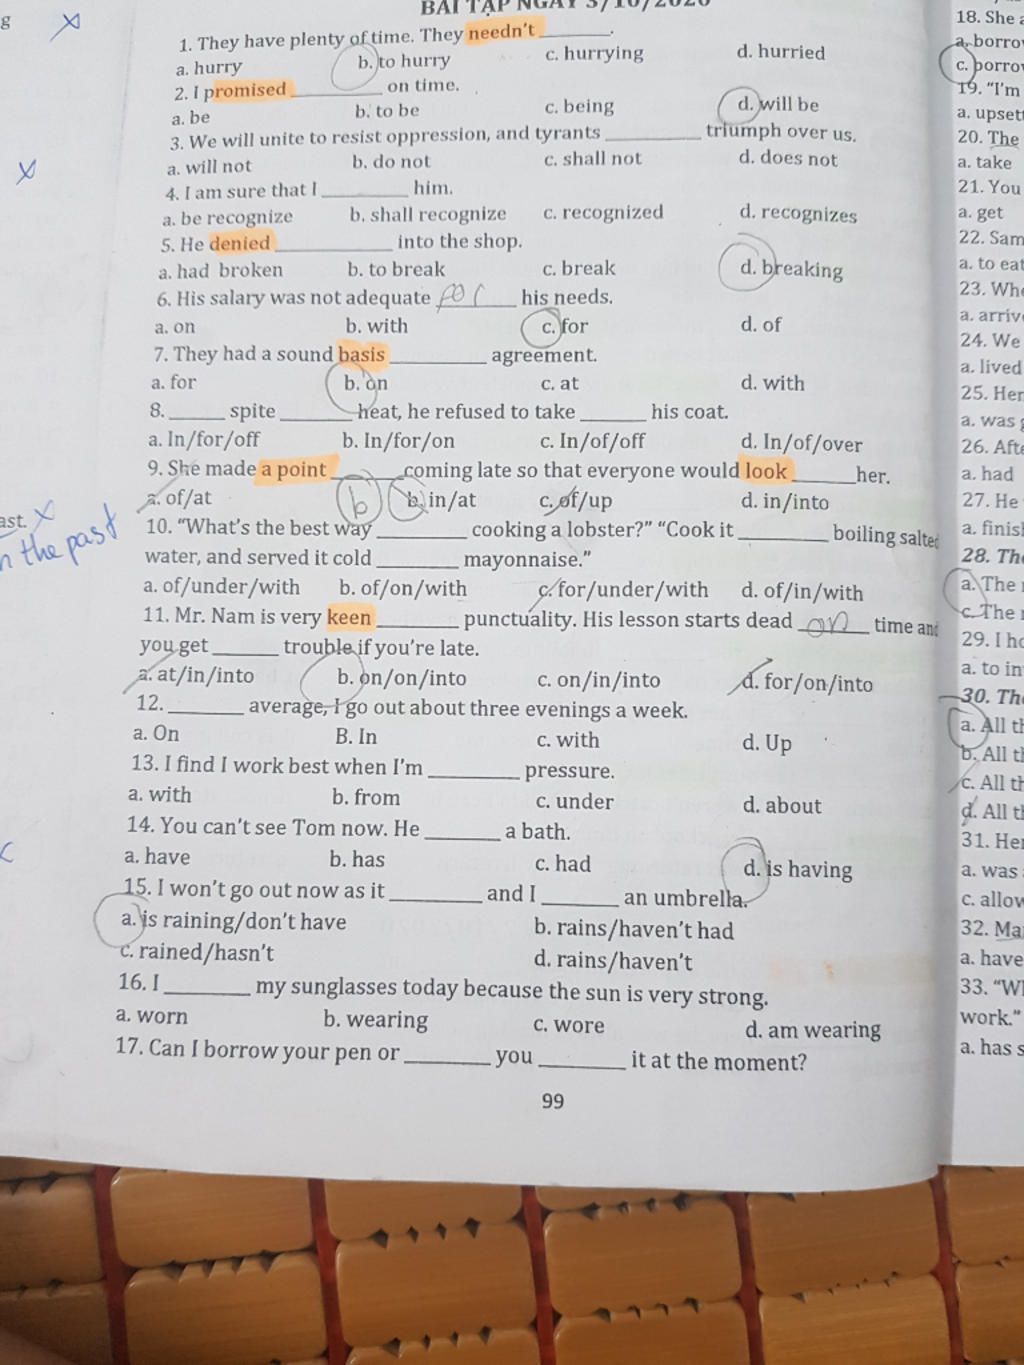 BÀI TẬP NGÀY 3/10/2020
1. They have plenty of time. They needn't ________.
a. hurry b. to hurry c. hurrying d. hurried
2. I promised ________ on time.
a. be b. to be c. being d. will be
3. We will unite to resist oppression, and tyrants ________ triumph over us.
a. will not b. do not c. shall not d. does not
4. I am sure that I ________ him.
a. be recognize b. shall recognize c. recognized d. recognizes
5. He denied ________ into the shop.
a. had broken b. to break c. break d. breaking
6. His salary was not adequate for his needs.
a. on b. with c. for d. of
7. They had a sound basis ________ agreement.
a. for b. on c. at d. with
8. ______ spite ________ heat, he refused to take ______ his coat.
a. In/for/off b. In/for/on c. In/of/off d. In/of/over
9. She made a point ________ coming late so that everyone would look ______ her.
a. of/at b b. in/at c. of/up d. in/into
10. "What's the best way ________ cooking a lobster?" "Cook it ________ boiling salted
water, and served it cold ________ mayonnaise."
a. of/under/with b. of/on/with c. for/under/with d. of/in/with
11. Mr. Nam is very keen ________ punctuality. His lesson starts dead on time and
you get ______ trouble if you're late.
a. at/in/into b. on/on/into c. on/in/into d. for/on/into
12. ________ average, I go out about three evenings a week.
a. On B. In c. with d. Up
13. I find I work best when I'm ________ pressure.
a. with b. from c. under d. about
14. You can't see Tom now. He ________ a bath.
a. have b. has c. had d. is having
15. I won't go out now as it ________ and I ________ an umbrella.
a. is raining/don't have b. rains/haven't had
c. rained/hasn't d. rains/haven't
16. I ________ my sunglasses today because the sun is very strong.
a. worn b. wearing c. wore d. am wearing
17. Can I borrow your pen or ________ you ________ it at the moment?
99
g
ast.
the past
18. She
a. borro
c. borro
19. "I'm
a. upset
20. The
a. take
21. You
a. get
22. Sam
a. to eat
23. Whe
a. arriv
24. We
a. lived
25. Her
a. was
26. Afte
a. had
27. He
a. finis
28. The
a. The
c. The
29. I ho
a. to in
30. The
a. All th
b. All th
c. All th
d. All th
31. Her
a. was
c. allow
32. Ma
a. have
33. "W
work."
a. has s